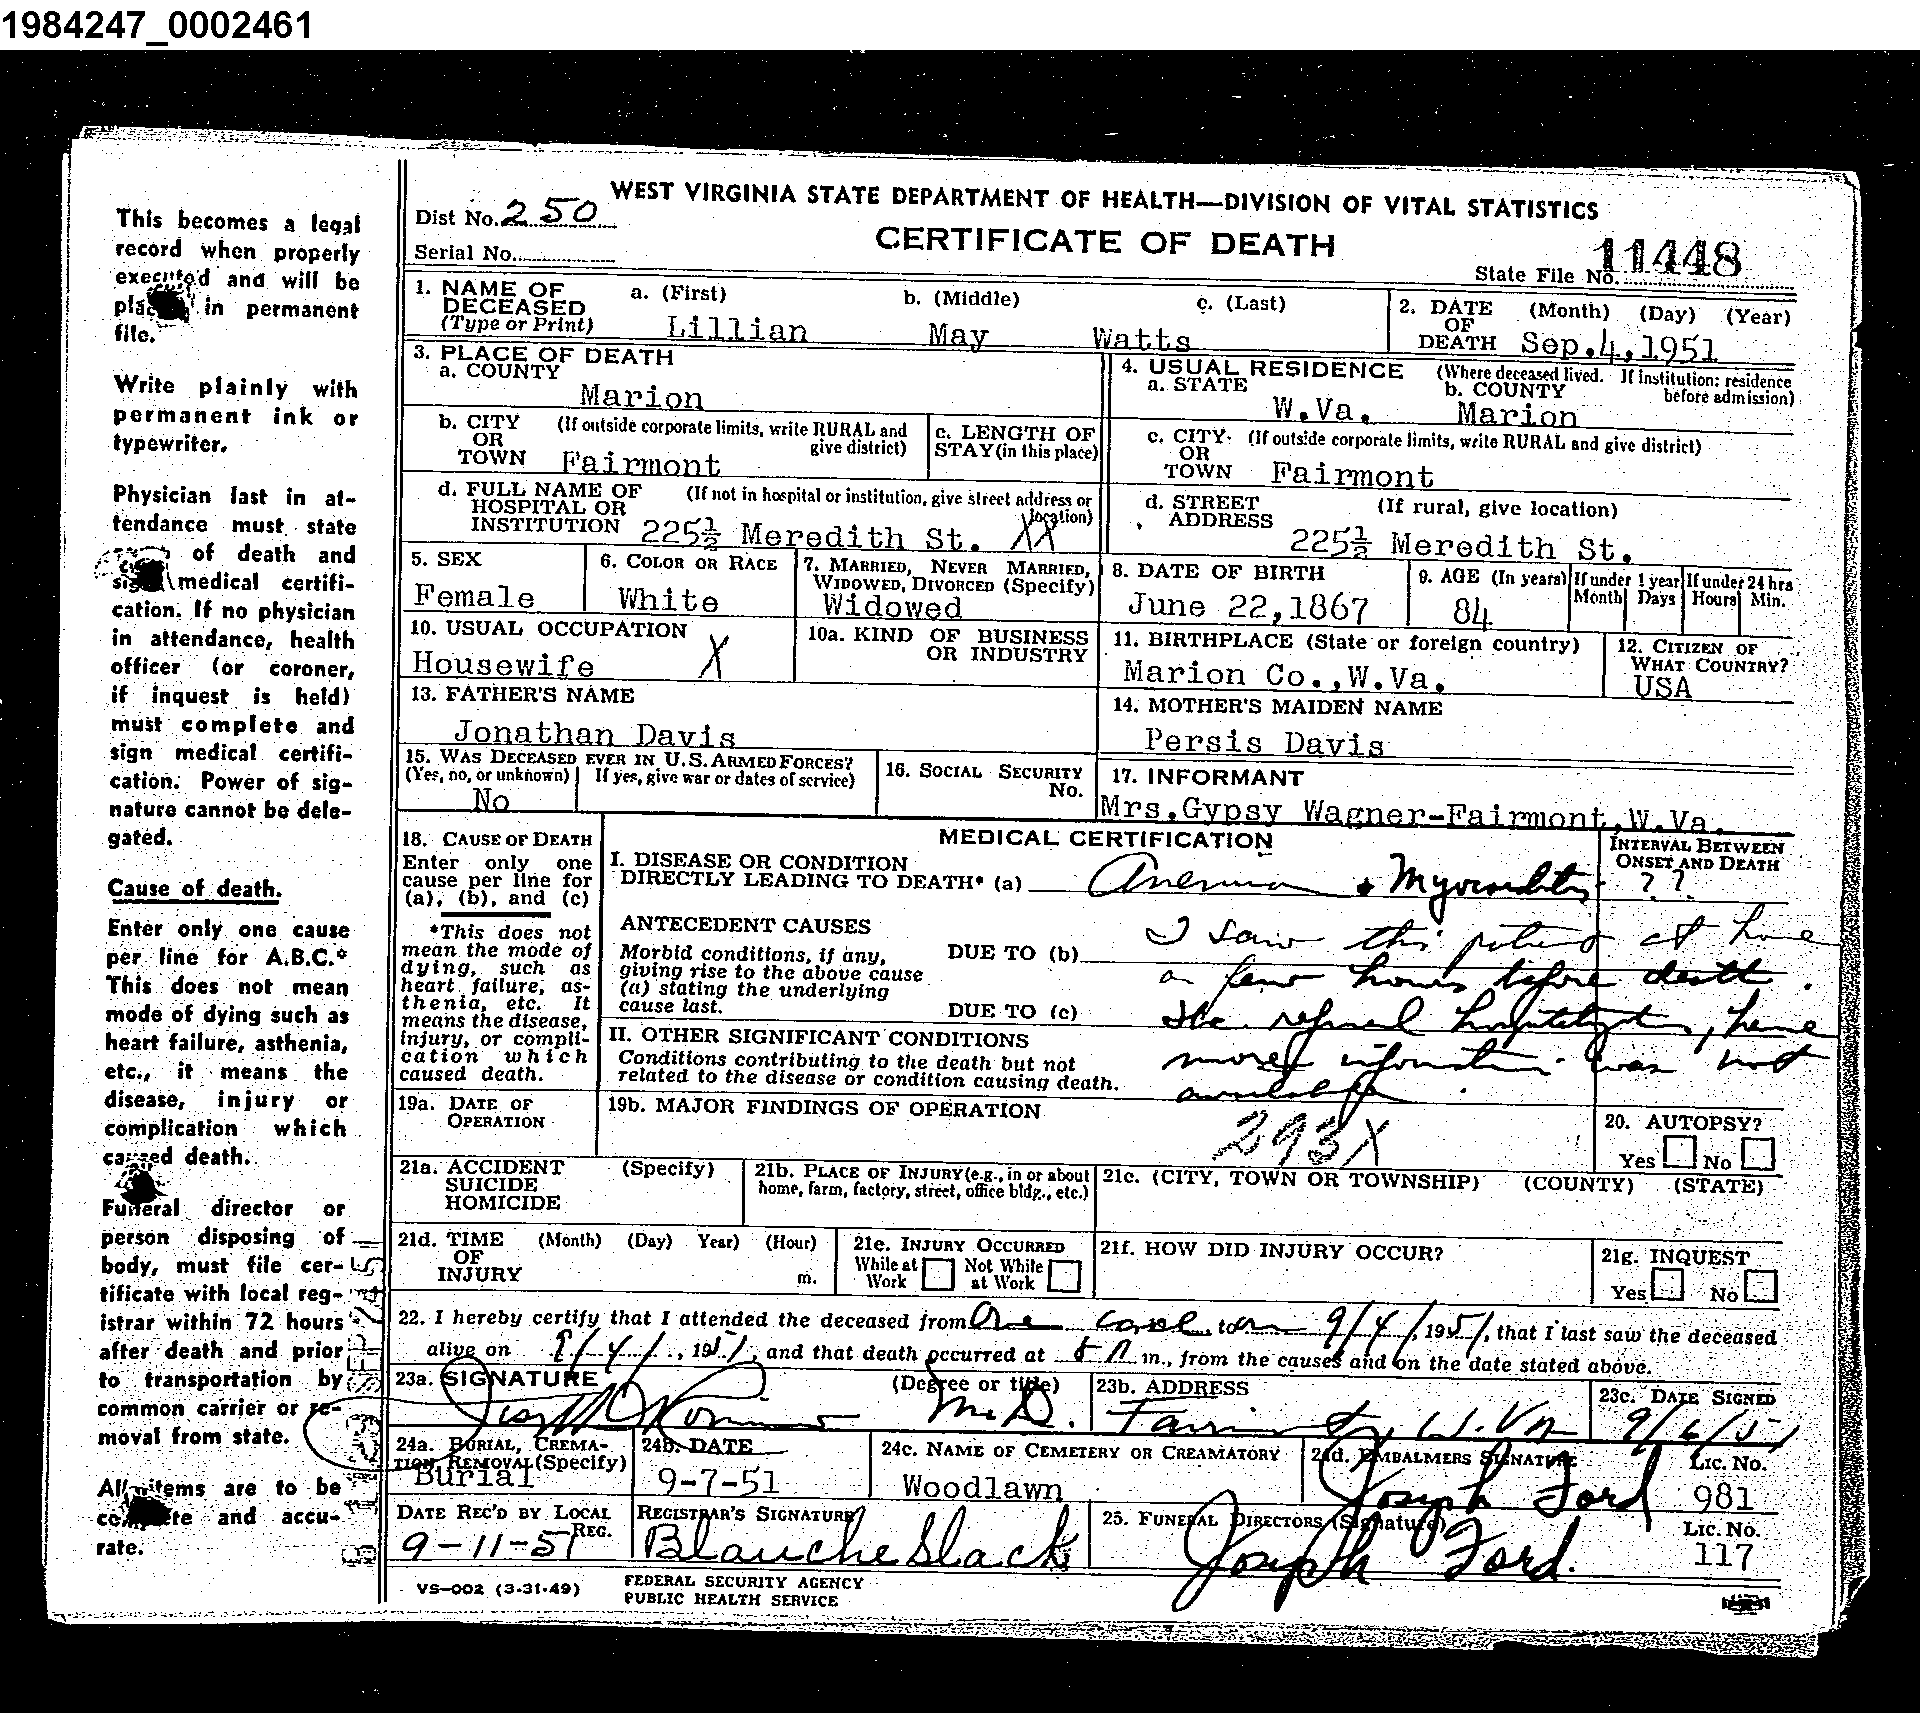 1984247_0002461
WEST VIRGINIA STATE DEPARTMENT OF HEALTH—DIVISION OF VITAL STATISTICS
Dist No. 250
CERTIFICATE OF DEATH
Serial No.
State File No. 11448
1. NAME OF DECEASED (Type or Print) a. (First) Lillian b. (Middle) May c. (Last) Watts
2. DATE OF DEATH (Month) (Day) (Year) Sep.4,1951
3. PLACE OF DEATH
a. COUNTY Marion
b. CITY OR TOWN (If outside corporate limits, write RURAL and give district) Fairmont
c. LENGTH OF STAY (in this place)
d. FULL NAME OF HOSPITAL OR INSTITUTION (If not in hospital or institution, give street address or location) 225½ Meredith St. XX
4. USUAL RESIDENCE (Where deceased lived. If institution: residence before admission)
a. STATE W.Va. b. COUNTY Marion
c. CITY OR TOWN (If outside corporate limits, write RURAL and give district) Fairmont
d. STREET ADDRESS (If rural, give location) 225½ Meredith St.
5. SEX Female
6. COLOR OR RACE White
7. MARRIED, NEVER MARRIED, WIDOWED, DIVORCED (Specify) Widowed
8. DATE OF BIRTH June 22,1867
9. AGE (In years) 84 If under 1 year Month Days If under 24 hrs Hours Min.
10. USUAL OCCUPATION Housewife X
10a. KIND OF BUSINESS OR INDUSTRY
11. BIRTHPLACE (State or foreign country) Marion Co.,W.Va.
12. CITIZEN OF WHAT COUNTRY? USA
13. FATHER'S NAME Jonathan Davis
14. MOTHER'S MAIDEN NAME Persis Davis
15. WAS DECEASED EVER IN U.S. ARMED FORCES? (Yes, no, or unknown) If yes, give war or dates of service) No
16. SOCIAL SECURITY No.
17. INFORMANT Mrs.Gypsy Wagner-Fairmont,W.Va.
18. CAUSE OF DEATH
Enter only one cause per line for (a), (b), and (c)
*This does not mean the mode of dying, such as heart failure, asthenia, etc. It means the disease, injury, or complication which caused death.
MEDICAL CERTIFICATION
INTERVAL BETWEEN ONSET AND DEATH ? ?
I. DISEASE OR CONDITION DIRECTLY LEADING TO DEATH* (a) Anemia + Myocarditis
ANTECEDENT CAUSES
Morbid conditions, if any, giving rise to the above cause (a) stating the underlying cause last.
DUE TO (b)
DUE TO (c)
I saw this patient at home
a few hours before death.
She refused hospitalization, hence
more information was not
available.
II. OTHER SIGNIFICANT CONDITIONS
Conditions contributing to the death but not related to the disease or condition causing death.
19a. DATE OF OPERATION
19b. MAJOR FINDINGS OF OPERATION
293X
20. AUTOPSY? Yes No
21a. ACCIDENT SUICIDE HOMICIDE (Specify)
21b. PLACE OF INJURY (e.g., in or about home, farm, factory, street, office bldg., etc.)
21c. (CITY, TOWN OR TOWNSHIP) (COUNTY) (STATE)
21d. TIME OF INJURY (Month) (Day) Year) (Hour) m.
21e. INJURY OCCURRED While at Work Not While at Work
21f. HOW DID INJURY OCCUR?
21g. INQUEST Yes No
22. I hereby certify that I attended the deceased from One 9/4/, 1951, that I last saw the deceased
alive on 9/4/, 1951, and that death occurred at m., from the causes and on the date stated above.
23a. SIGNATURE (Degree or title) M.D.
23b. ADDRESS Fairmont, W.Va
23c. DATE SIGNED 9/6/51
24a. BURIAL, CREMATION, REMOVAL (Specify) Burial
24b. DATE 9-7-51
24c. NAME OF CEMETERY OR CREAMATORY Woodlawn
24d. EMBALMERS SIGNATURE Joseph Ford Lic. No. 981
DATE REC'D BY LOCAL REG. 9-11-51
REGISTRAR'S SIGNATURE Blanche Slack
25. FUNERAL DIRECTORS (Signature) Joseph Ford. Lic. No. 117
VS-002 (3-31-49)
FEDERAL SECURITY AGENCY
PUBLIC HEALTH SERVICE
This becomes a legal
record when properly
executed and will be
in permanent
file.
Write plainly with
permanent ink or
typewriter.
Physician last in at-
tendance must state
of death and
medical certifi-
cation. If no physician
in attendance, health
officer (or coroner,
if inquest is held)
must complete and
sign medical certifi-
cation. Power of sig-
nature cannot be dele-
gated.
Cause of death.
Enter only one cause
per line for A.B.C.*
This does not mean
mode of dying such as
heart failure, asthenia,
etc., it means the
disease, injury or
complication which
caused death.
Funeral director or
person disposing of
body, must file cer-
tificate with local reg-
istrar within 72 hours
after death and prior
to transportation by
common carrier or re-
moval from state.
All items are to be
and accu-
rate.